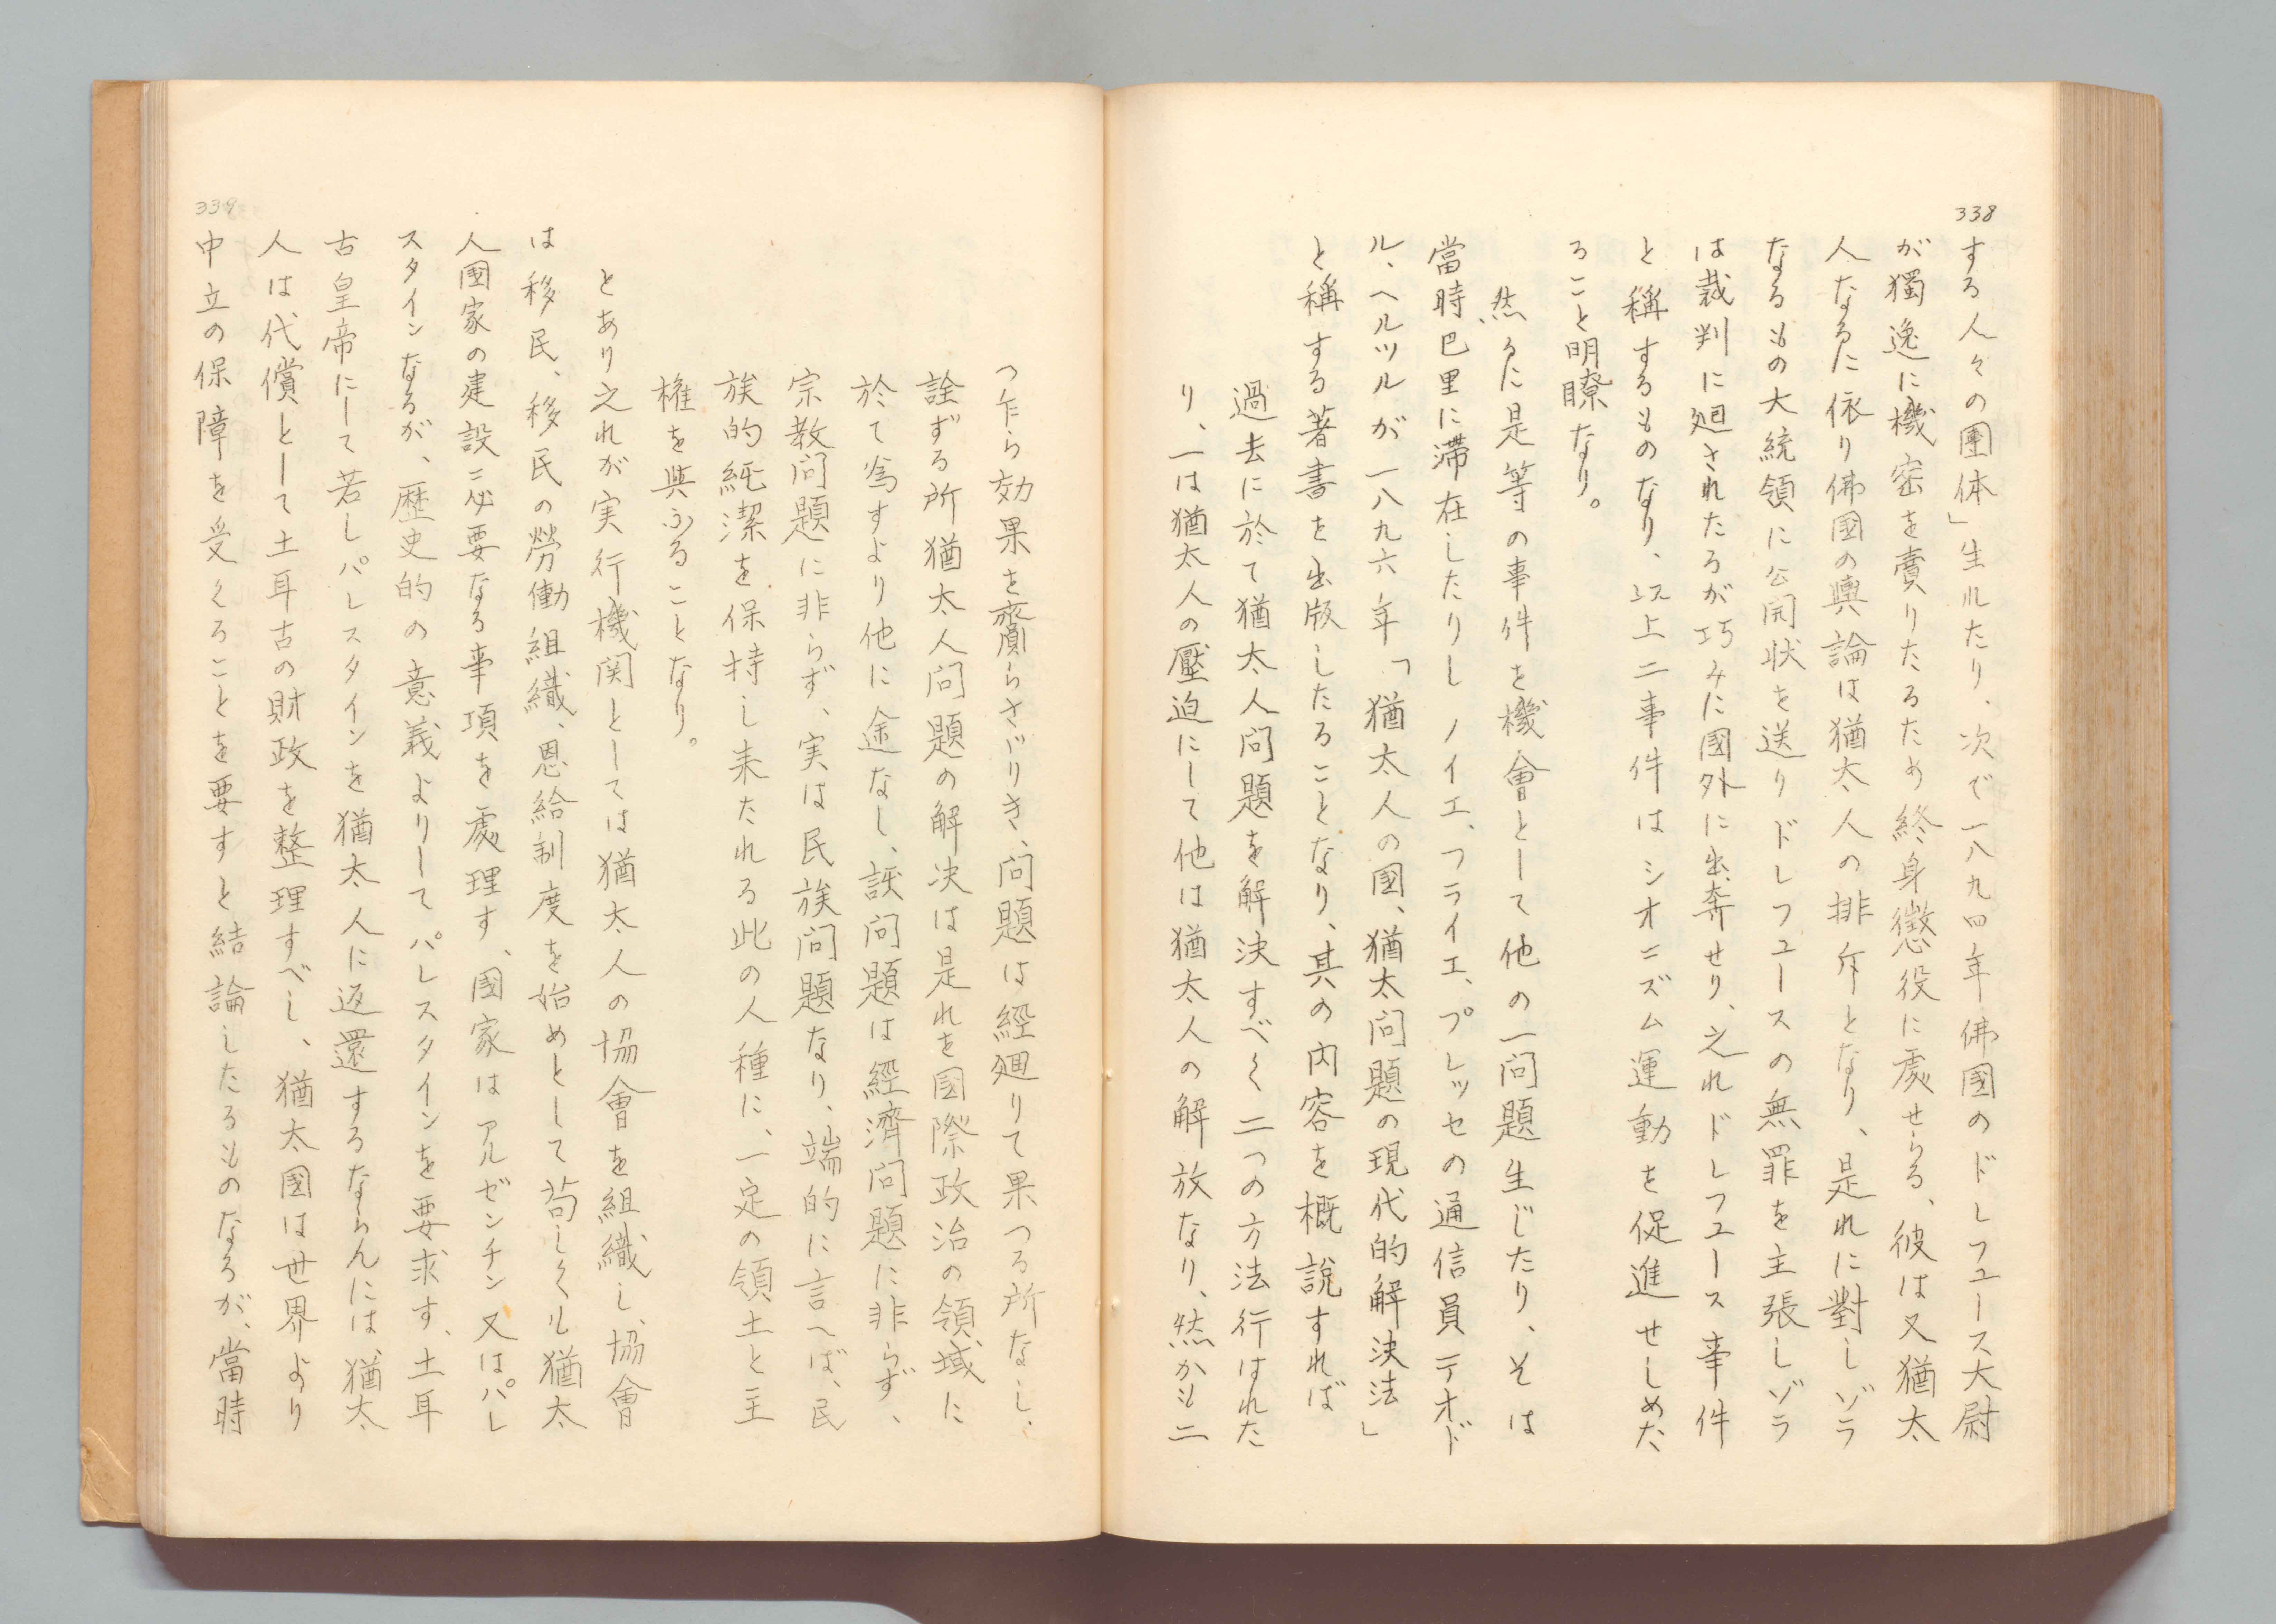 338
する人々の團体」生れたり、次で一八九四年佛國のドレフユース大尉
が獨逸に機密を賣りたるため終身懲役に處せらる、彼は又猶太
人なるに依り佛國の輿論は猶太人の排斥となり、是れに對しゾラ
なるもの大統領に公開状を送りドレフユースの無罪を主張しゾラ
は裁判に廻されたるが巧みに國外に出奔せり、之れドレフユース事件
と稱するものなり、以上二事件はシオニズム運動を促進せしめた
ること明瞭なり。
然るに是等の事件を機會として他の一問題生じたり、そは
當時巴里に滞在したりしノイエ、フライエ、プレッセの通信員テオド
ル、ヘルツルが一八九六年「猶太人の國、猶太問題の現代的解決法」
と稱する著書を出版したることなり、其の内容を概説すれば
過去に於て猶太人問題を解決すべく二つの方法行はれた
り、一は猶太人の壓迫にして他は猶太人の解放なり、然かも二
つ乍ら効果を齎らさゞりき、問題は經廻りて果つる所なし、
詮ずる所猶太人問題の解決は是れを國際政治の領域に
於て爲すより他に途なし、該問題は經濟問題に非らず、
宗教問題に非らず、実は民族問題なり、端的に言へば、民
族的純潔を保持し来たれる此の人種に、一定の領土と主
権を與ふることなり。
とあり之れが実行機関としては猶太人の協會を組織し、協會
は移民、移民の勞働組織、恩給制度を始めとして苟しくも猶太
人國家の建設ニ必要なる事項を處理す、國家はアルゼンチン又はパレ
スタインなるが、歴史的の意義よりしてパレスタインを要求す、土耳
古皇帝にして若しパレスタインを猶太人に返還するならんには、猶太
人は代償として土耳古の財政を整理すべし、猶太國は世界より
中立の保障を受くることを要すと結論したるものなるが、當時
339